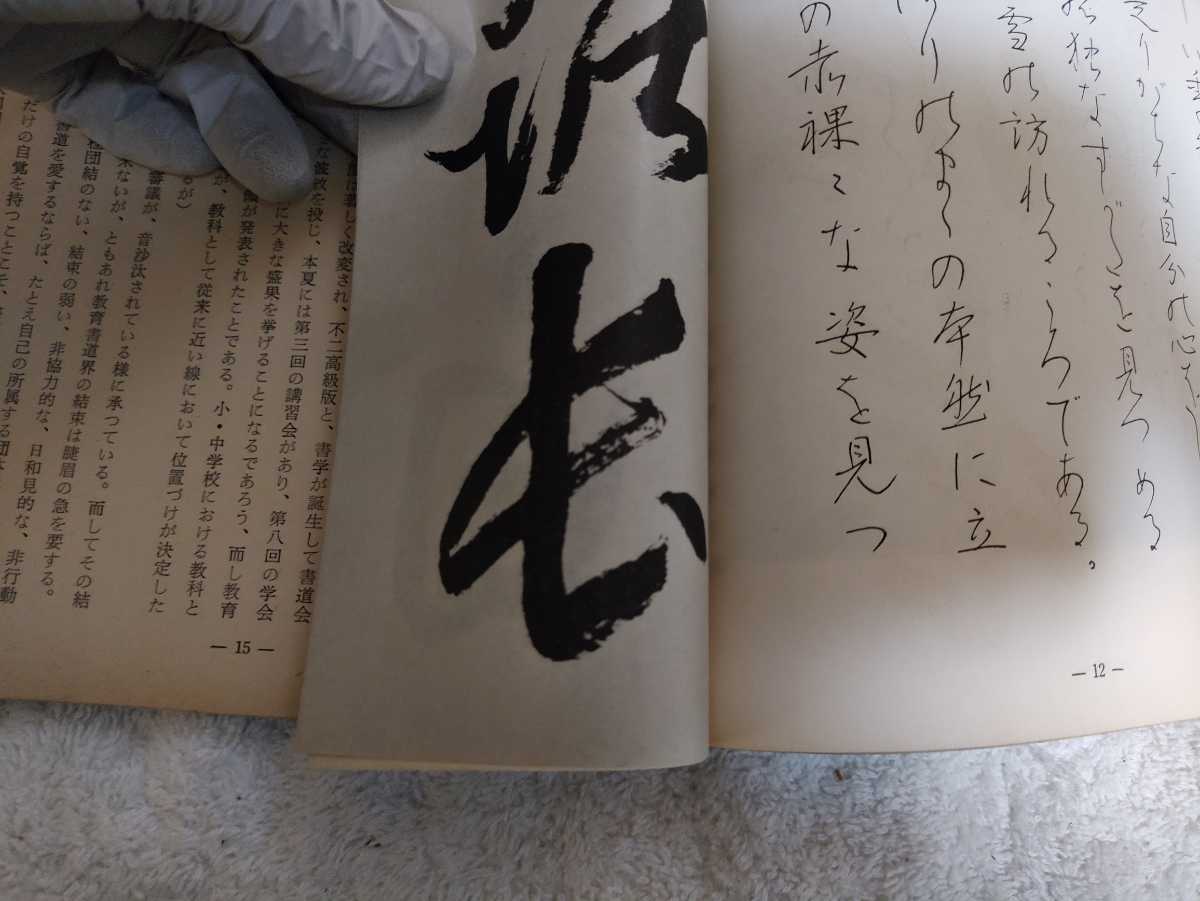 がちな自分の心を
孤独なすがたを見つめる
雪の訪れるころである。
りのまゝの本然に立
の赤裸々な姿を見つ
— 12 —
長
は著しく改変され、不二高級版と、書学が誕生して書道会
な波紋を投じ、本夏には第三回の講習会があり、第八回の学会
に大きな盛果を挙げることになるであろう、而し教育
議が発表されたことである。小・中学校における教科と
が、教科として従来に近い線において位置づけが決定した
るが)
審議が、音沙汰されている様に承つている。而してその結
来ないが、ともあれ教育書道界の結束は睫眉の急を要する。
団結のない、結束の弱い、非協力的な、日和見的な、非行動
書道を愛するならば、たとえ自己の所属する団
だけの自覚を持つことこそ、
— 15 —